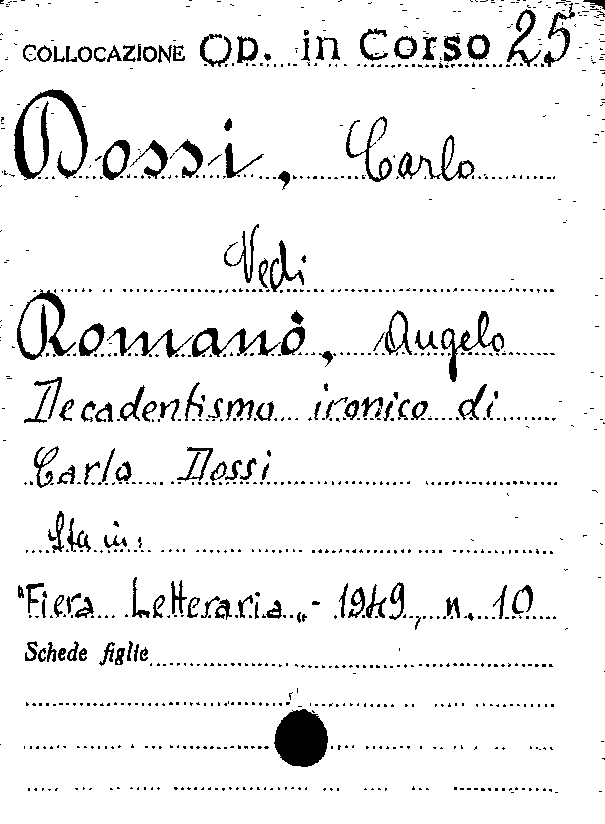 COLLOCAZIONE Op. in Corso 25
Dossi, Carlo
Vedi
Romanò, Angelo
Decadentismo ironico di
Carlo Dossi
Sta in:
"Fiera Letteraria„ - 1949, n. 10
Schede figlie